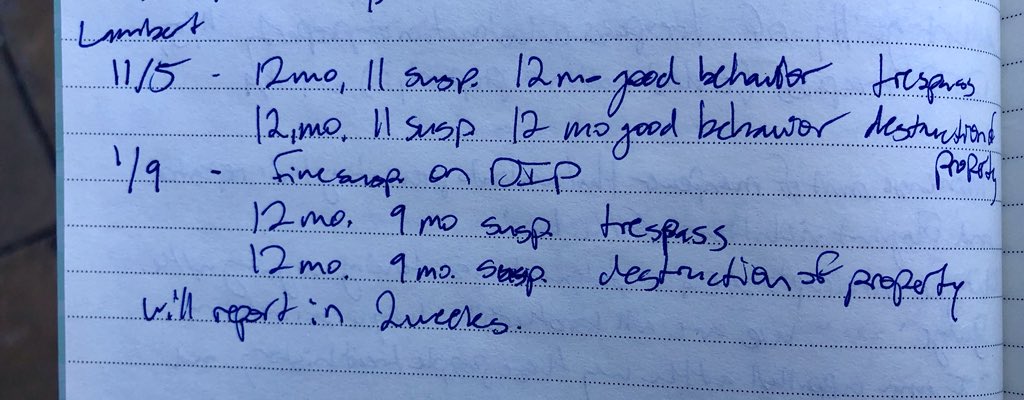 Lambert
11/5 - 12mo, 11 susp. 12 mo good behavior trespass
12 mo. 11 susp 12 mo good behavior destruction of
property
1/9 - fine susp on DIP
12 mo. 9 mo susp. trespass
12 mo. 9 mo. susp. destruction of property
will report in 2 weeks.